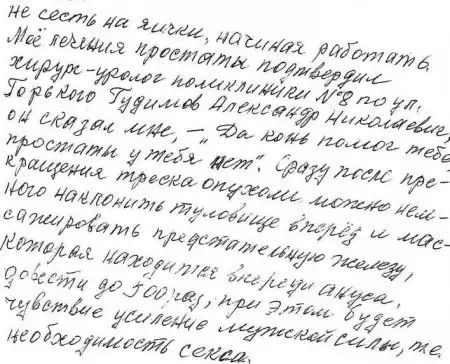 не сесть на яички, начиная работать.
Моё лечения простаты подтвердил
хирург-уролог поликлиники №8 по ул.
Горького Гудимов Александр Николаевич,
он сказал мне, – „Да конь помог тебе
простаты у тебя нет". Сразу после пре-
кращения треска опухоли можно нем-
ного наклонить туловище вперёд и мас-
сажировать предстательную железу,
которая находится впереди ануса,
довести до 500 раз, при этом будет
чувствие усиление мужской силы, т.е.
необходимость секса.